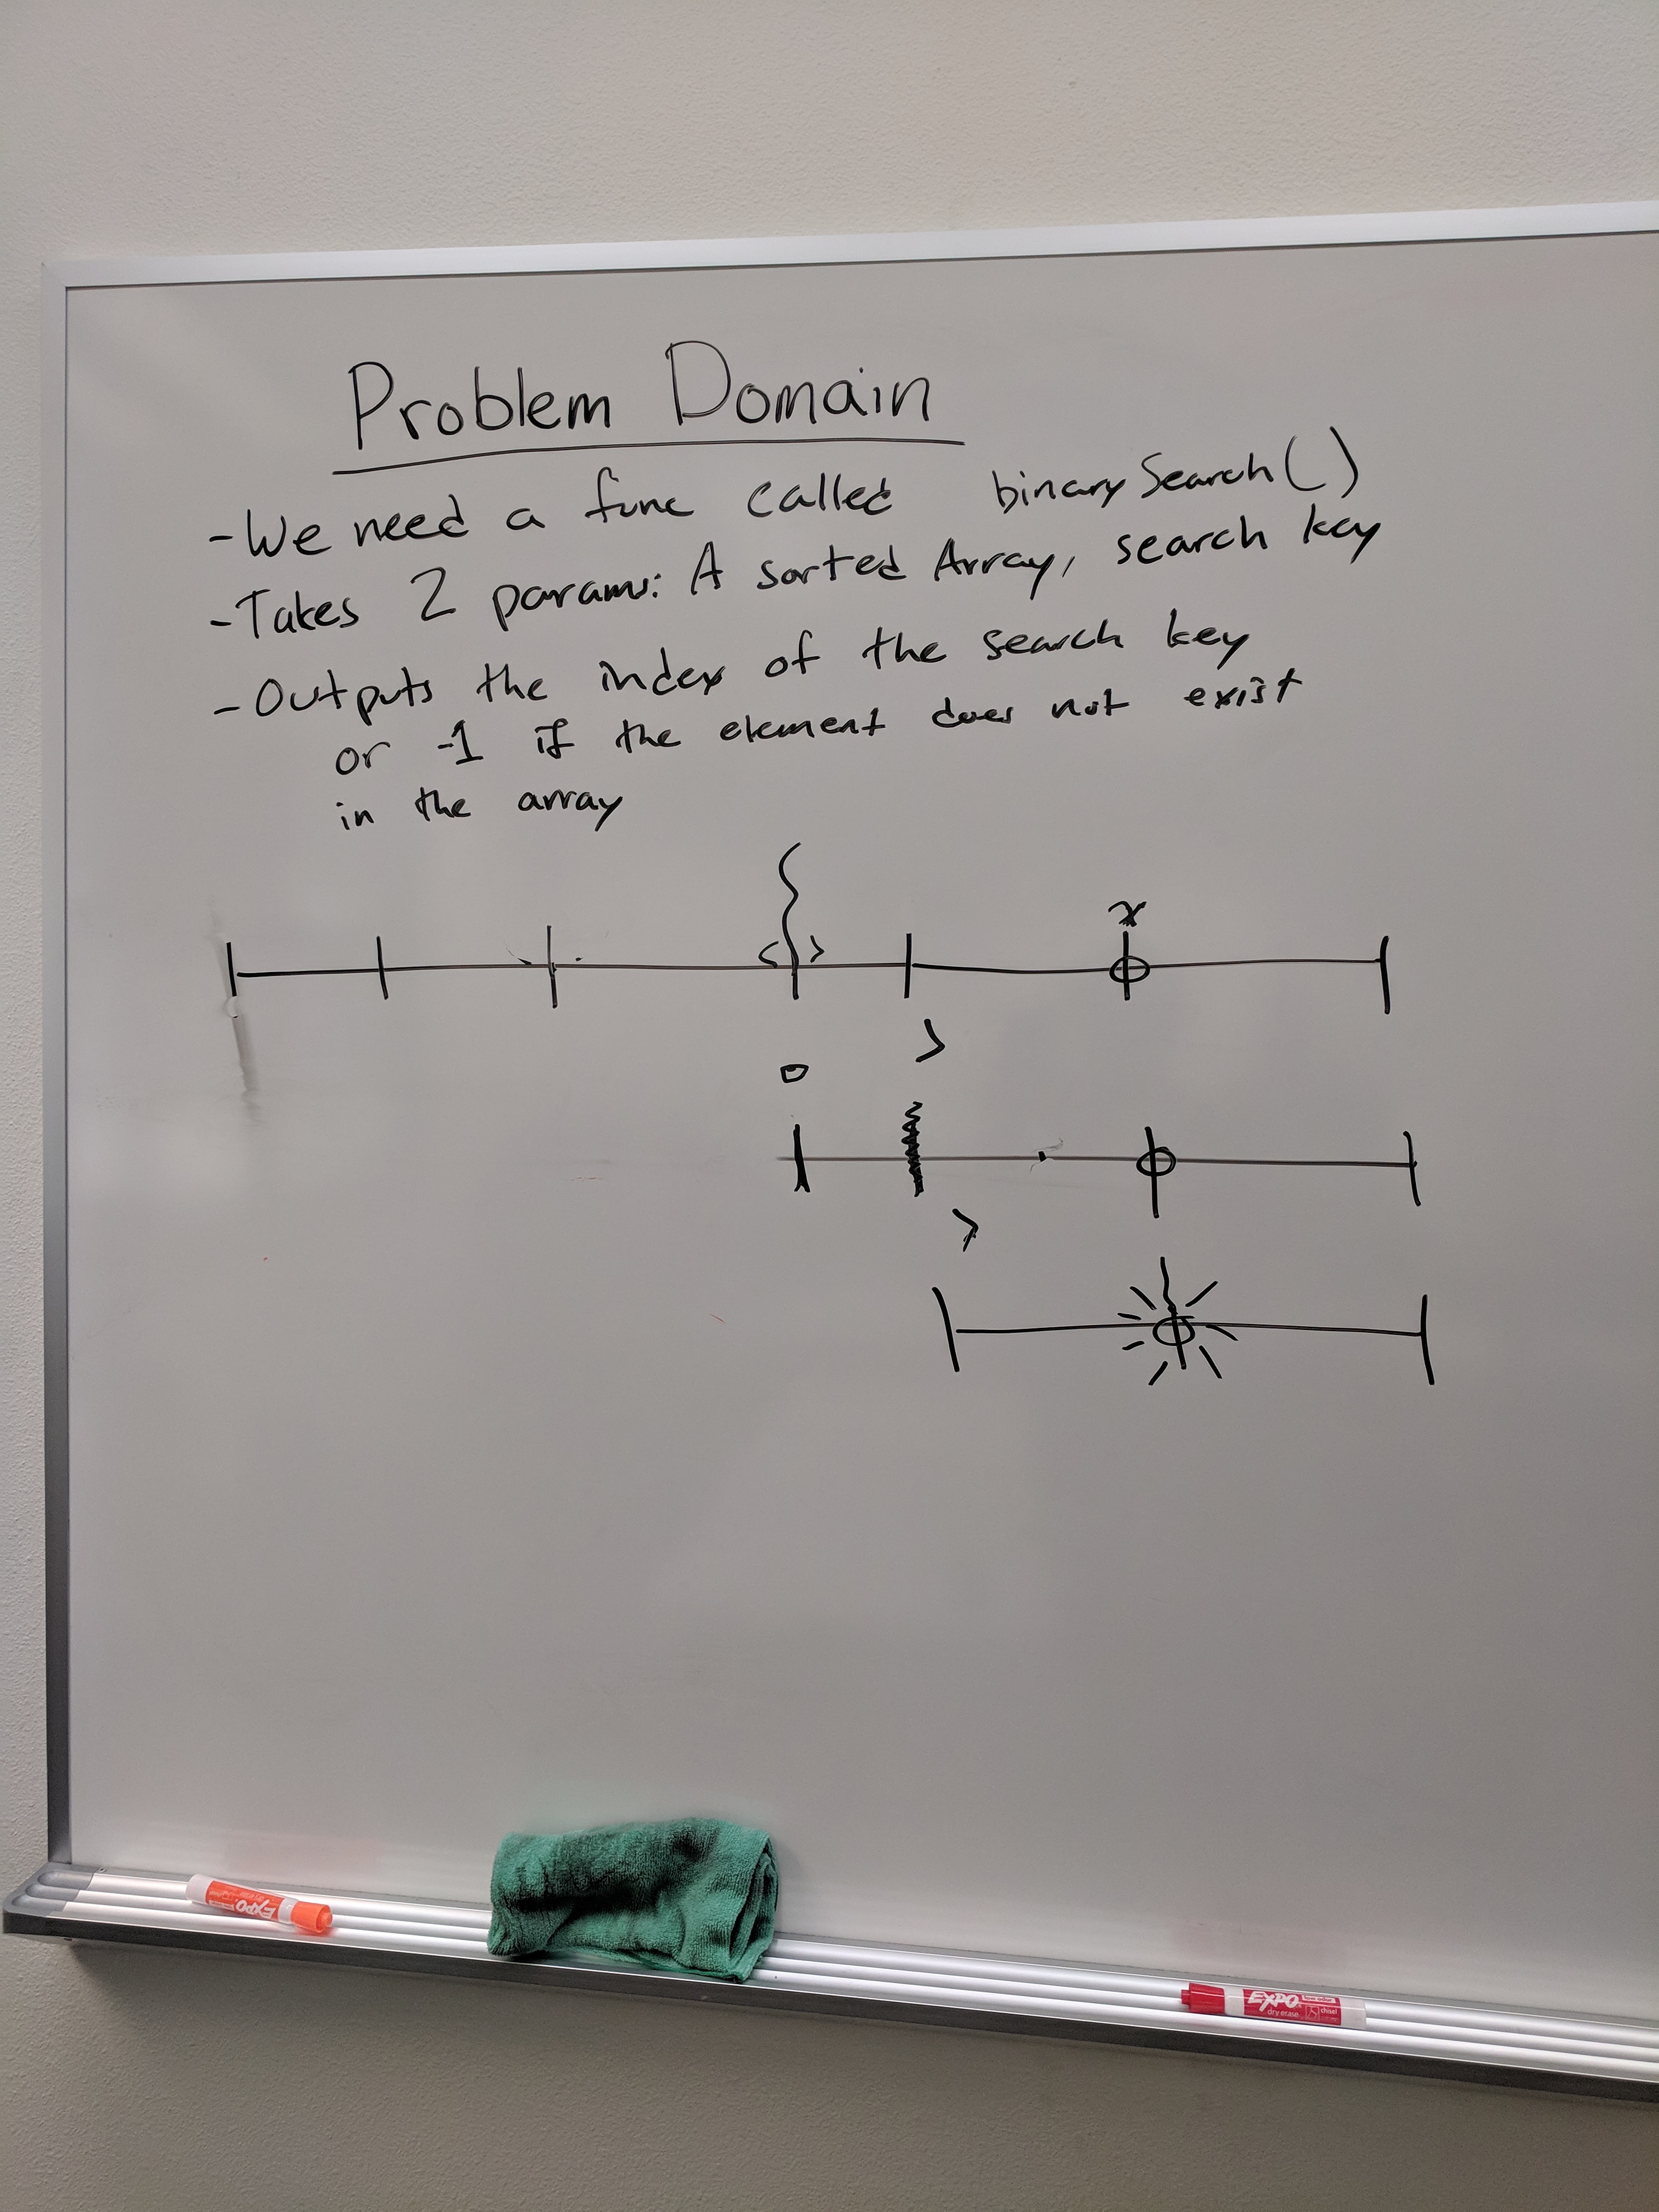 Problem Domain
- We need a func called binarySearch()
- Takes 2 params: A sorted Array, search key
- Outputs the index of the search key
or -1 if the element does not exist
in the array
< >
x
>
0
>
EXPO
EXPO
dry erase
chisel